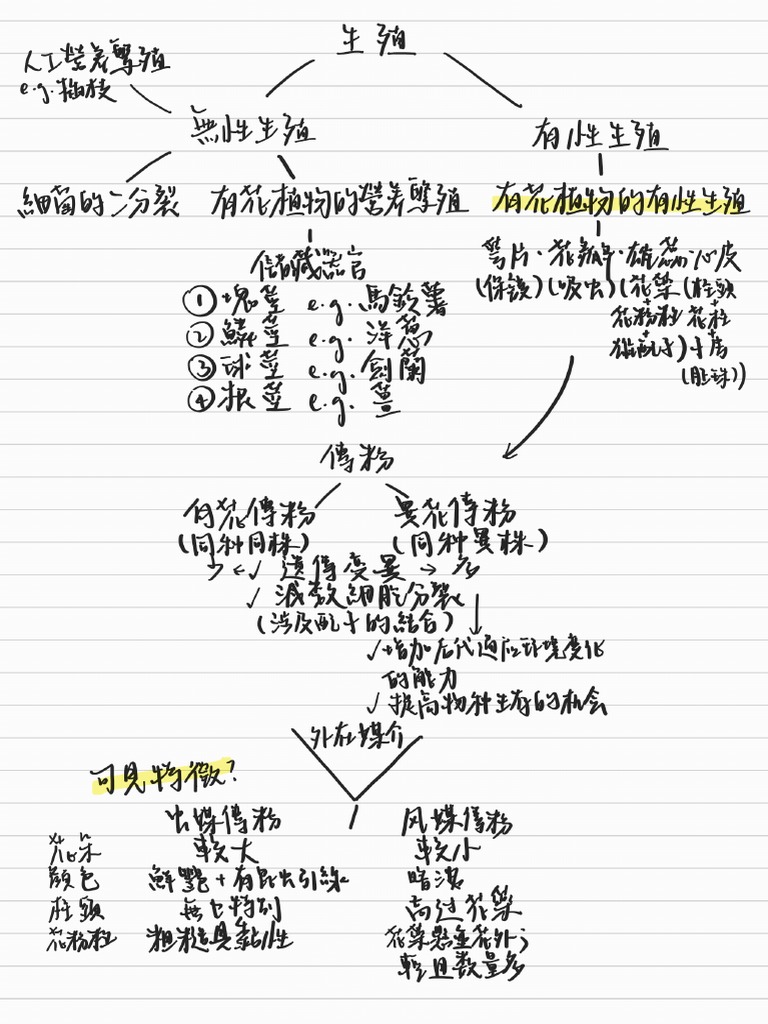 生殖
人工營養繁殖
e.g. 插枝
無性生殖
有性生殖
細菌的二分裂
有花植物的營養繁殖
有花植物的有性生殖
儲藏器官
① 塊莖 e.g. 馬鈴薯
② 鱗莖 e.g. 洋葱
③ 球莖 e.g. 劍蘭
④ 根莖 e.g. 薑
萼片·花瓣·雄蕊·心皮
(保護)(吸虫)(花藥 (柱頭
花粉粒 花柱
雄配子) 子房
(胚珠))
傳粉
自花傳粉
(同种同株)
異花傳粉
(同种異株)
少 ← ✓ 遺傳變異 → 多
✓ 減數細胞分裂
(涉及配子的結合)
✓ 增加后代适应环境变化
的能力
✓ 提高物种生存的机会
外在媒介
可見特徵?
虫媒傳粉 / 风媒傳粉
花朵 較大 較小
顏色 鮮艷 + 有昆虫引線 暗淡
柱頭 無乜特別 高过花藥
花粉粒 粗糙具黏性 花藥懸垂花外;
輕且数量多